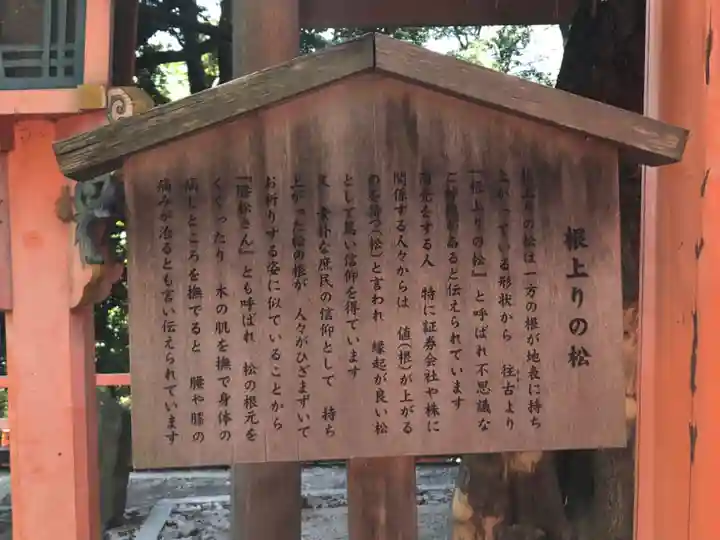 根上りの松
根上りの松は一方の根が地表に持ち
上がっている形状から 往古より
『根上りの松』と呼ばれ不思議な
ご神徳があると伝えられています
商売をする人 特に証券会社や株に
関係する人々からは 値(根)が上がる
のを待つ(松)と言われ 縁起が良い松
として篤い信仰を得ています
又 素朴な庶民の信仰として 持ち
上がった松の根が 人々がひざまずいて
お祈りする姿に似ていることから
『膝松さん』とも呼ばれ 松の根元を
くぐったり 木の肌を撫で身体の
病しところを撫でると 腰や膝の
痛みが治るとも言い伝えられています